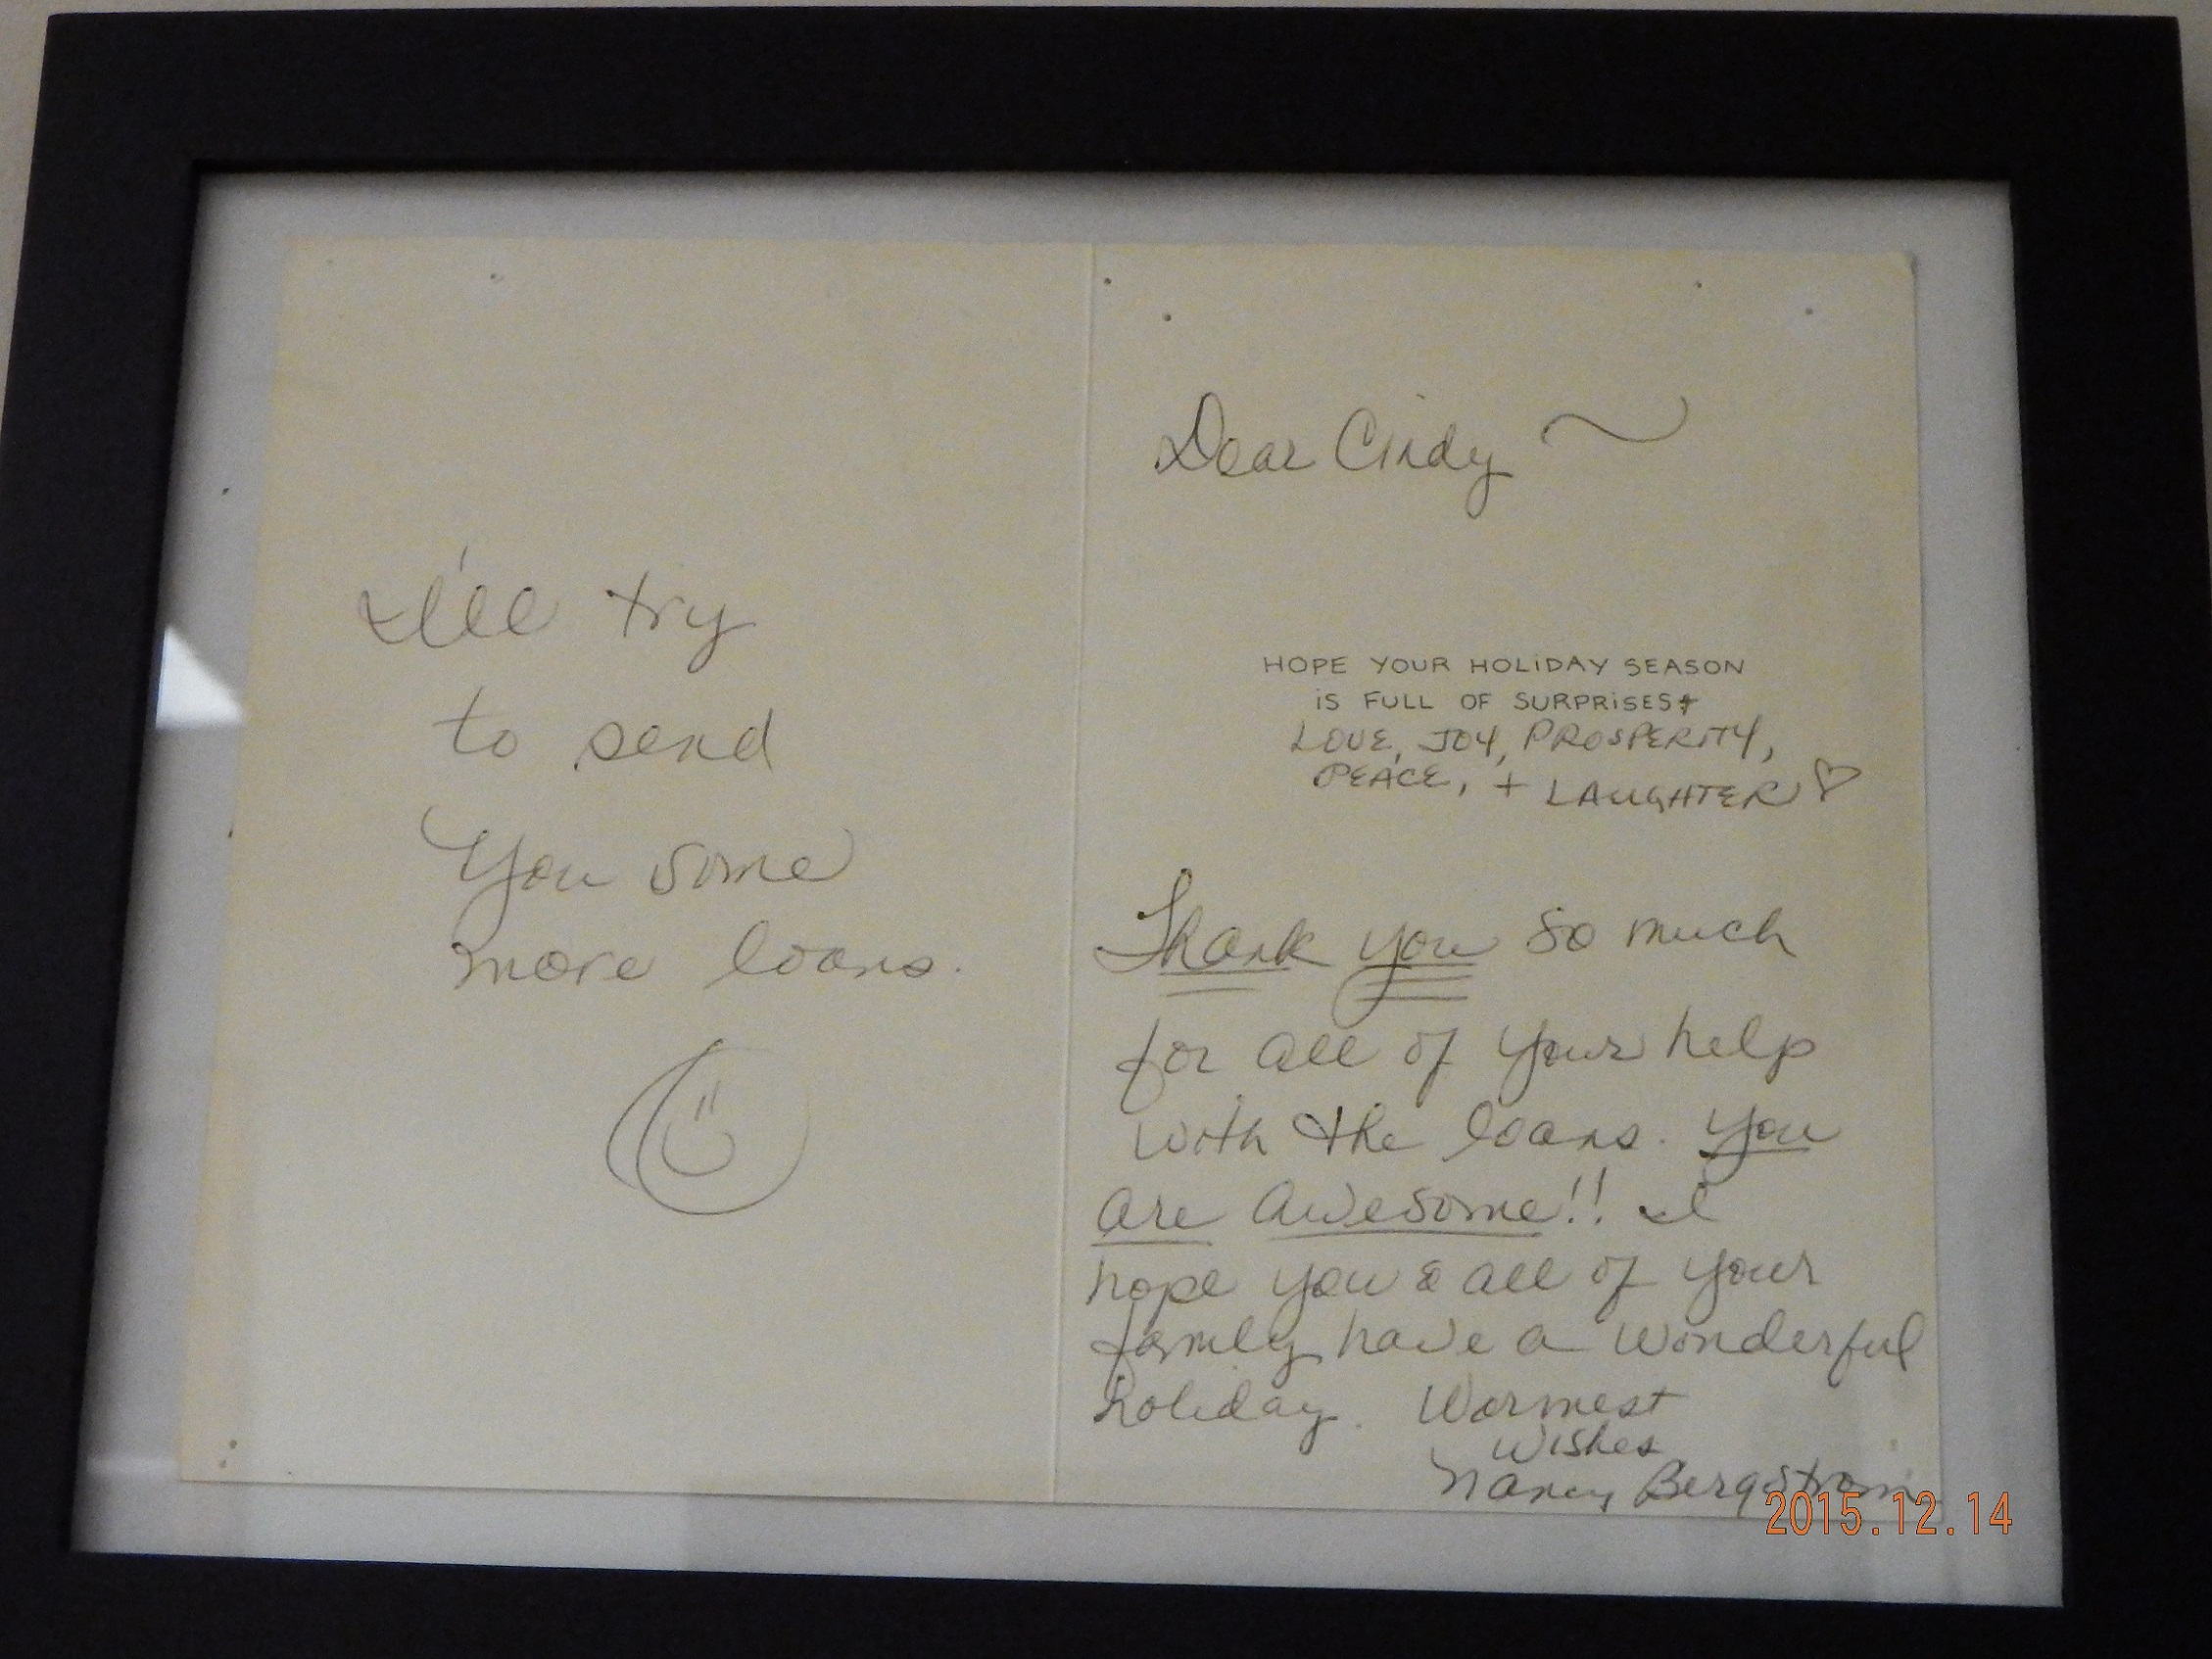 I'll try
to send
you some
more loans.
Dear Cindy ~
HOPE YOUR HOLiDAY SEASON
iS FULL OF SURPRiSES+
LOVE, JOY, PROSPERITY,
PEACE, + LAUGHTER ♡
Thank you so much
for all of your help
with the loans. You
are awesome!! I
hope you & all of your
family have a wonderful
holiday. Warmest
Wishes
Nancy Bergstrom
2015.12.14